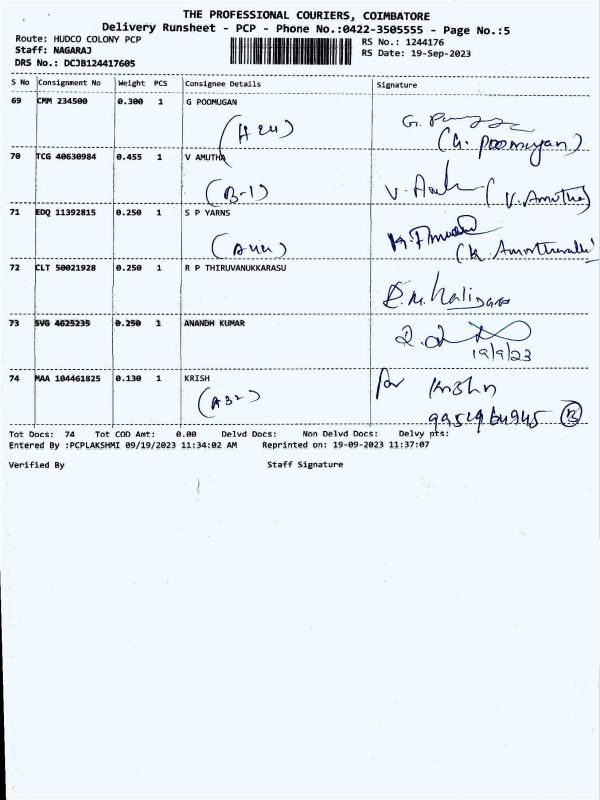 THE PROFESSIONAL COURIERS, COIMBATORE
Delivery Runsheet - PCP - Phone No.:0422-3505555 - Page No.:5
Route: HUDCO COLONY PCP RS No.: 1244176
Staff: NAGARAJ RS Date: 19-Sep-2023
DRS No.: DCJB124417605
S No Consignment No Weight PCS Consignee Details Signature
69 CMM 234500 0.300 1 G POOMUGAN
(A24) (G. Poomugan)
70 TCG 40630984 0.455 1 V AMUTHA
(B-1) (V. Amutha)
71 EDQ 11392815 0.250 1 S P YARNS
(A44)
72 CLT 50021928 0.250 1 R P THIRUVANUKKARASU
73 SVG 4625235 0.250 1 ANANDH KUMAR
19/9/23
74 MAA 104461825 0.130 1 KRISH
(A32)
Tot Docs: 74 Tot COD Amt: 0.00 Delvd Docs: Non Delvd Docs: Delvy pts:
Entered By :PCPLAKSHMI 09/19/2023 11:34:02 AM Reprinted on: 19-09-2023 11:37:07
Verified By Staff Signature